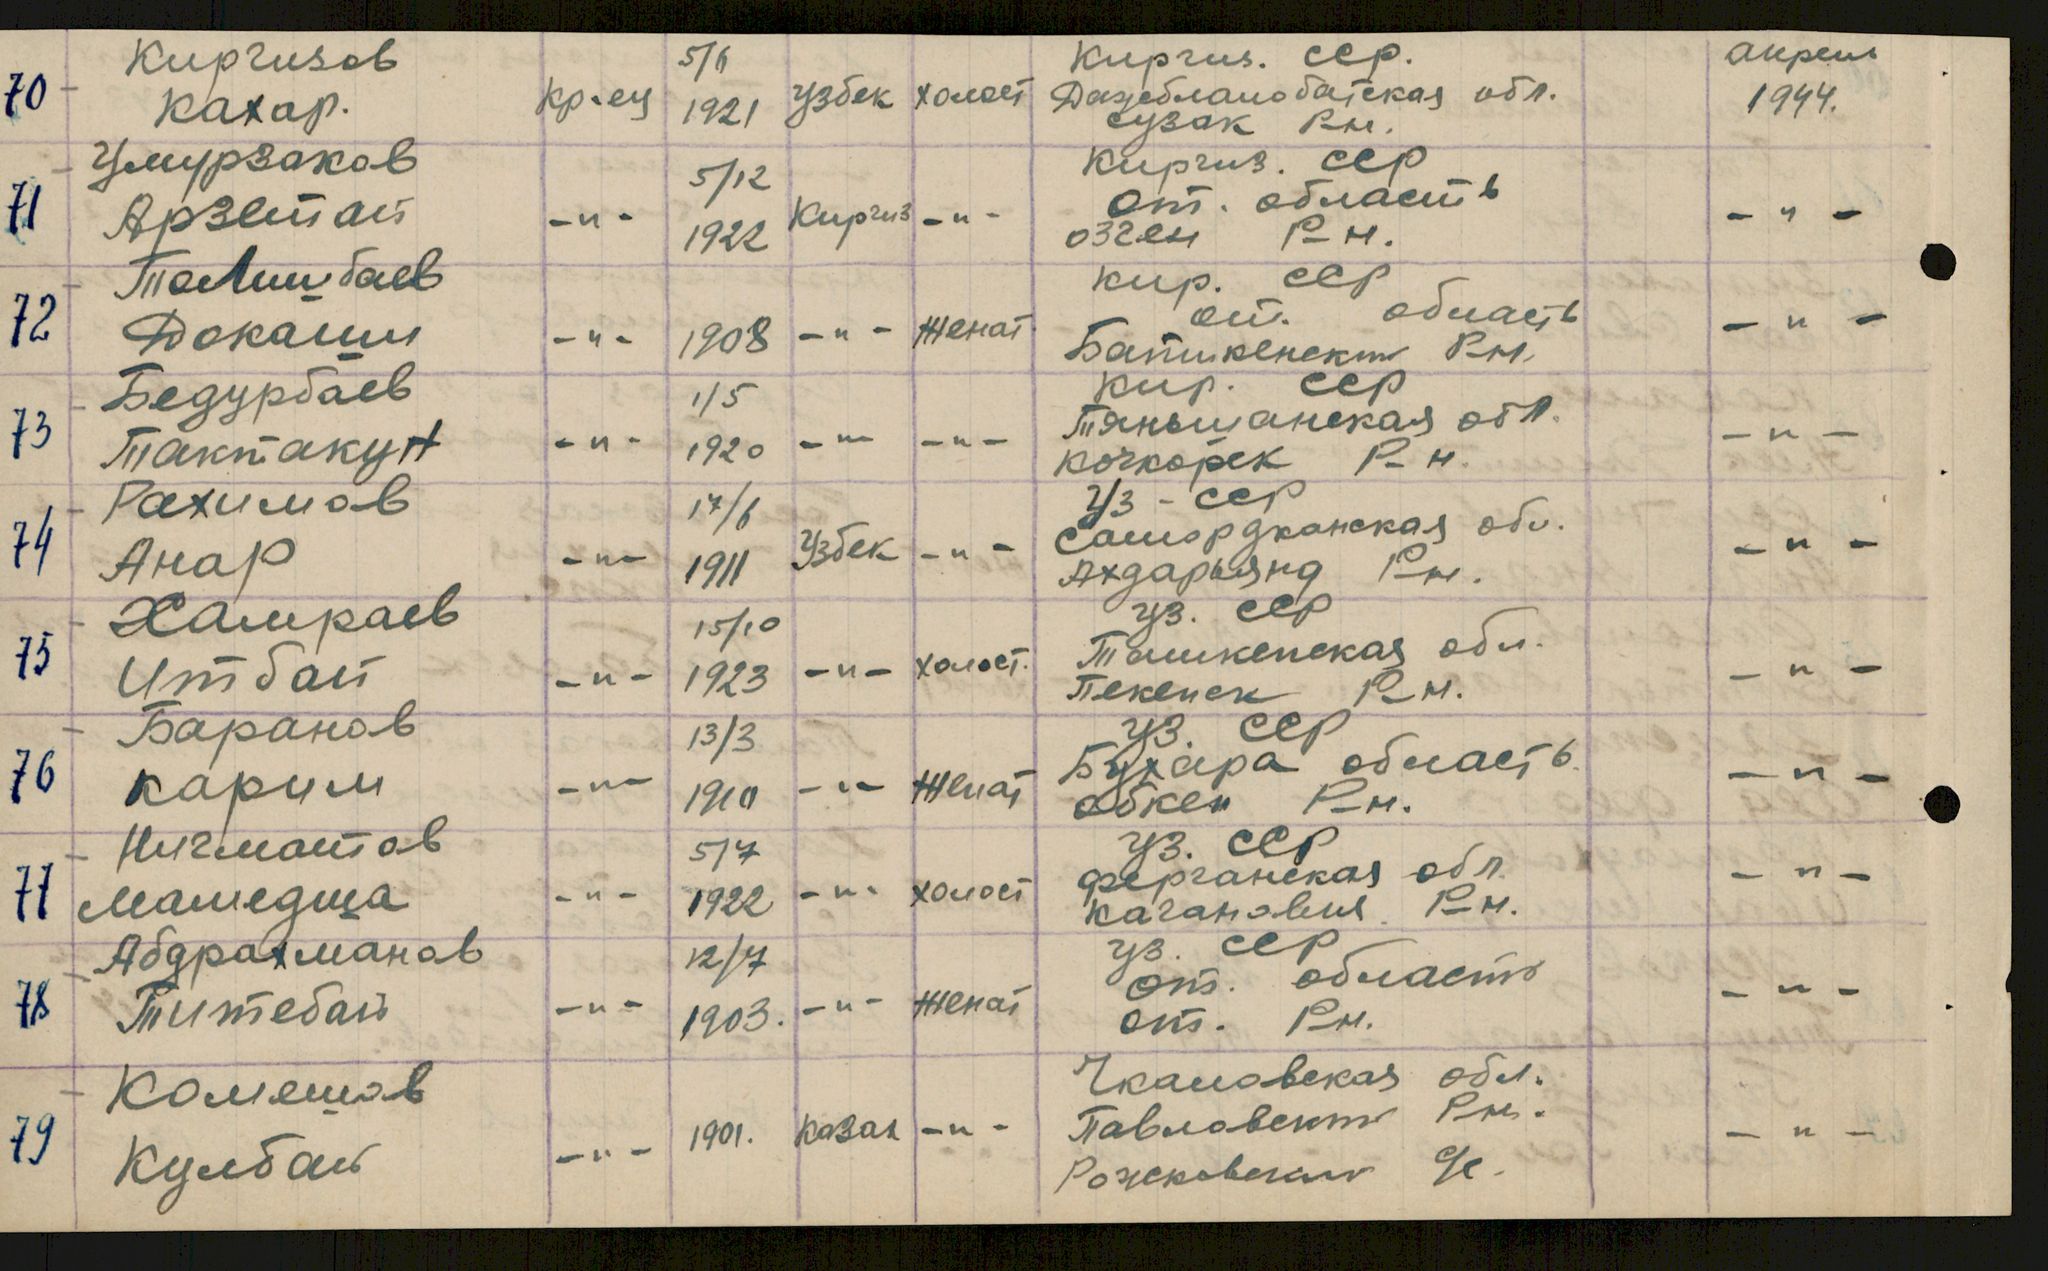 Киргизов 5/6 Киргиз. ССР. апрель
70 Кахар. Кр-ец 1921 Узбек холост Джеблалобатская обл. 1944.
Сузак Р-н.
Умурзаков 5/12 Киргиз. ССР
71 Арзетай -"- 1922 Киргиз -"- Ош. область -"-
Озген Р-н.
Толишбаев Кир. ССР
72 Докаши -"- 1908 -"- Женат Ош. область -"-
Баткенский Р-н.
Бедурбаев 1/5 Кир. ССР
73 Тактакун -"- 1920 -"- -"- Тяньшанская обл. -"-
Кочкорек Р-н.
Рахимов 17/6 Уз-ССР
74 Анар -"- 1911 Узбек -"- Самордканская обл. -"-
Ахдарьянд Р-н.
Хамраев 15/10 Уз. ССР
75 Итбай -"- 1923 -"- холост. Ташкенская обл. -"-
Пекенек Р-н.
Баранов 13/3 Уз. ССР
76 Карим -"- 1910 -"- Женат Бухара область -"-
Обкен Р-н.
Нигматов 5/7 Уз. ССР
77 Мамедша -"- 1922 -"- холост Ферганская обл. -"-
Кагановия Р-н.
Абдрахманов 12/7 Уз. ССР
78 Титебай -"- 1903. -"- Женат Ош. область -"-
Ош. Р-н.
Комешов Чкаловская обл.
79 Кулбай -"- 1901. Казах -"- Павловский Р-н. -"-
Рожковский